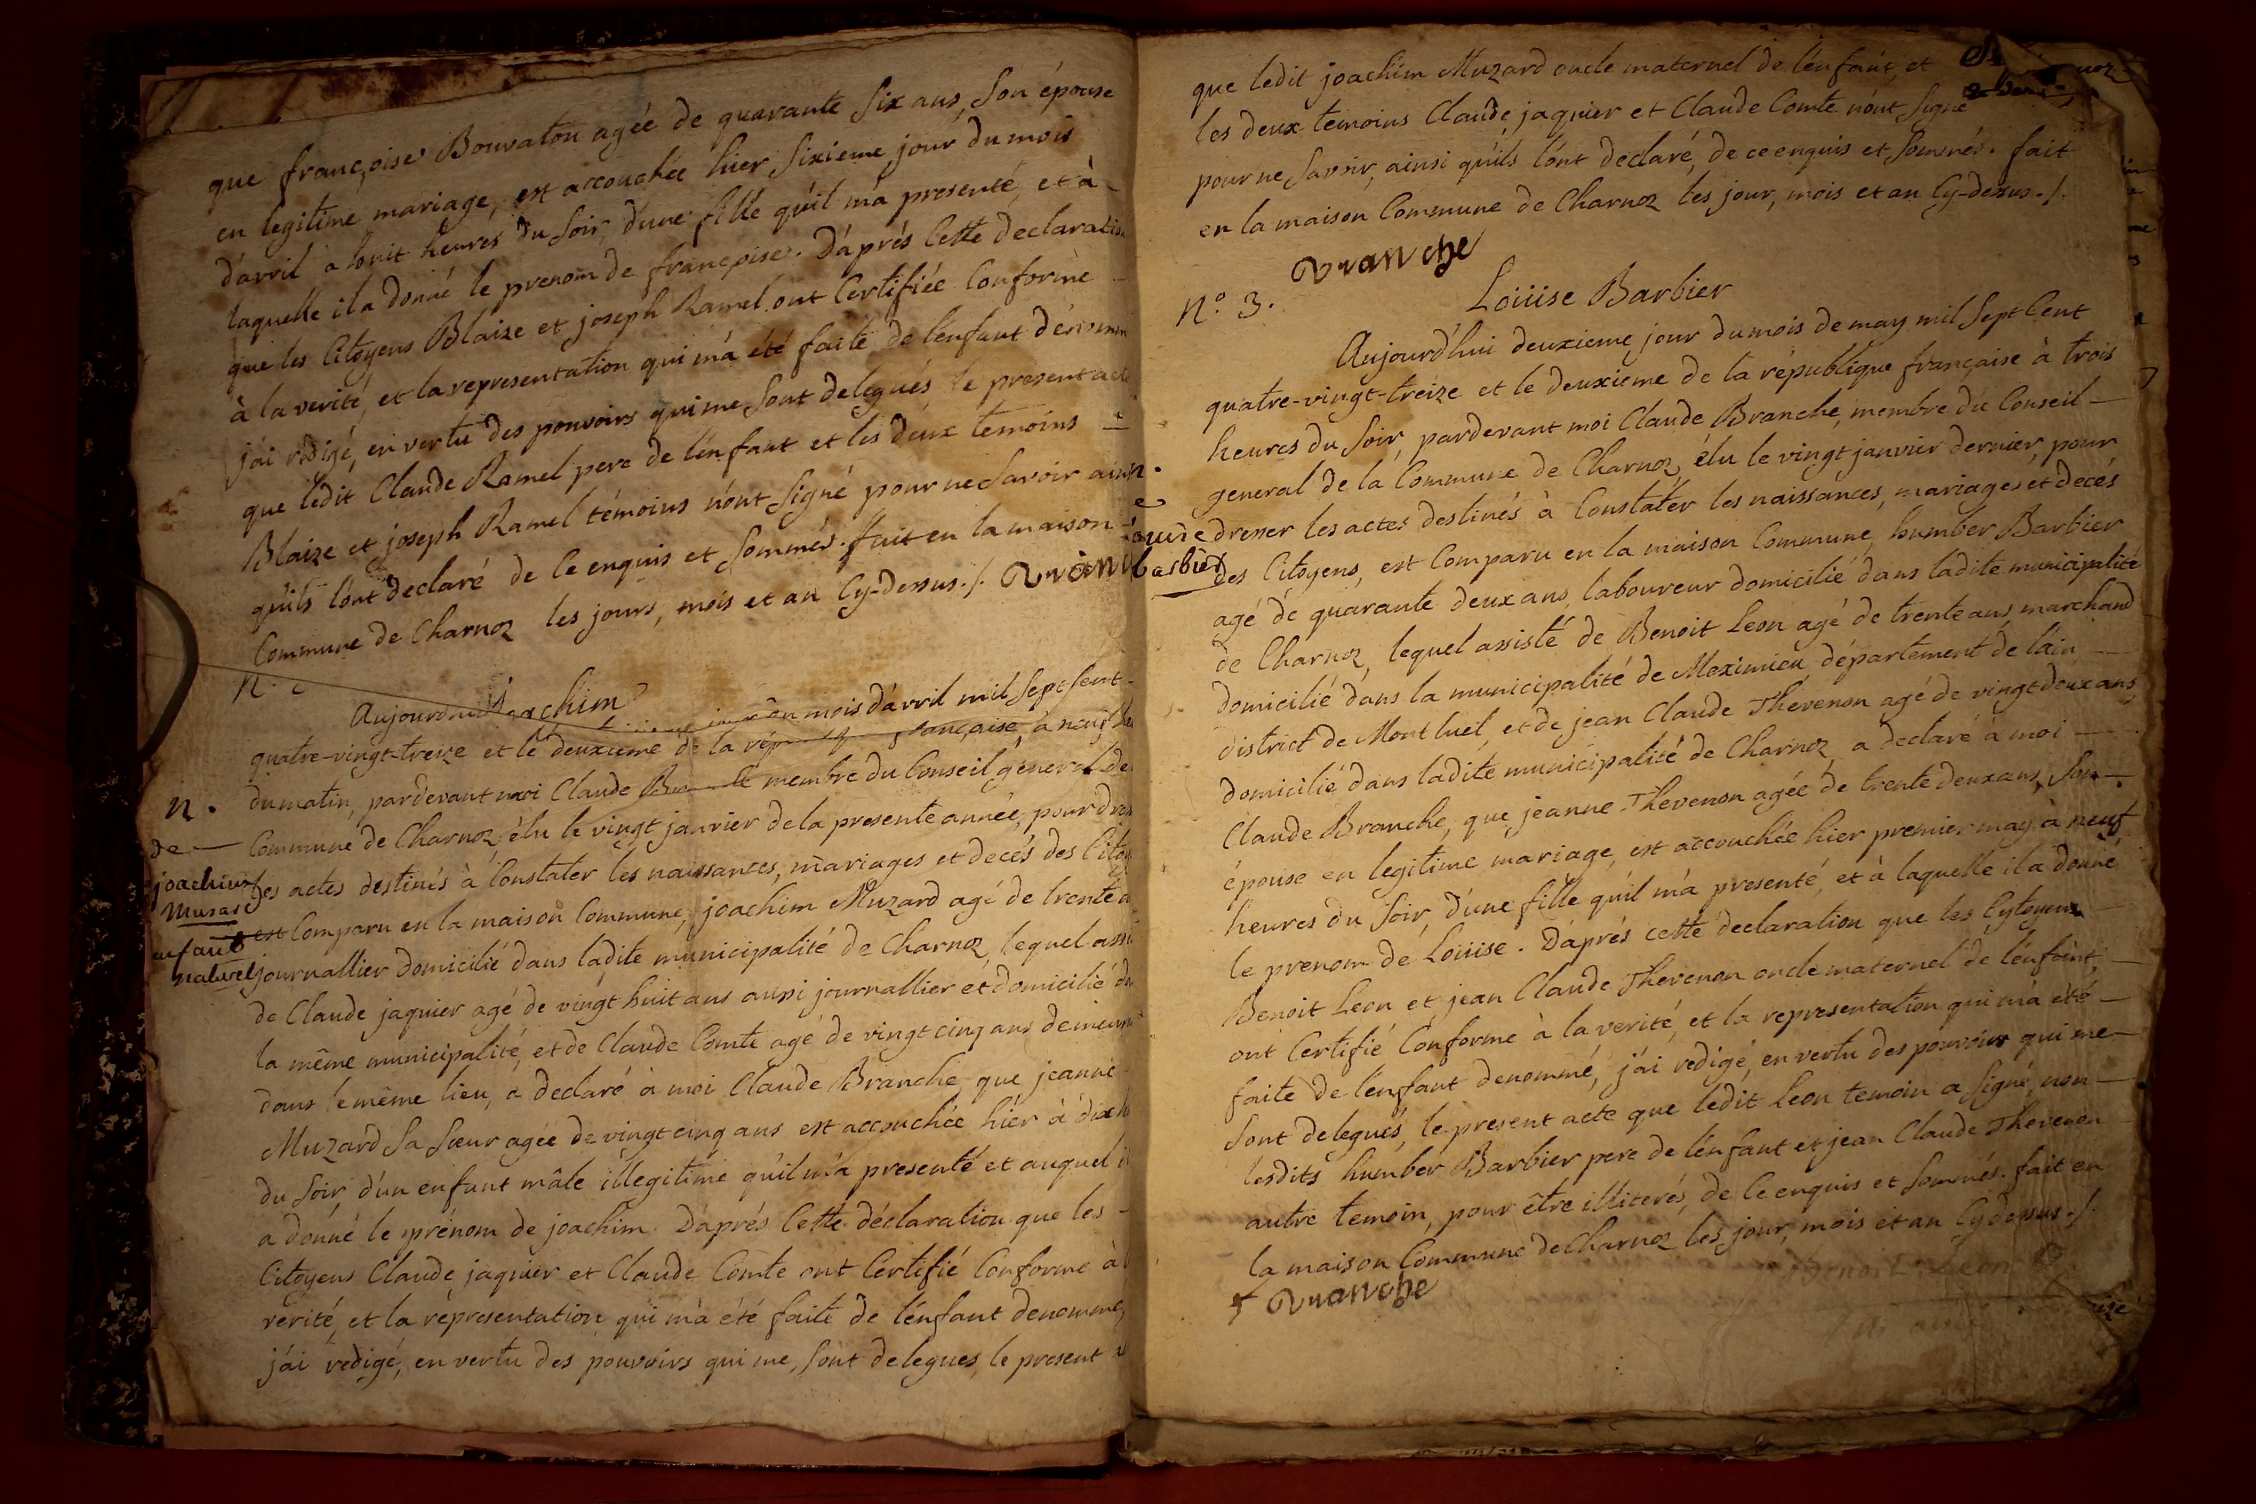 que françoise Bouvaton agée de quarante six ans, son épouse
en legitime mariage, est accouchée hier sixieme jour du mois
d'avril a huit heures du soir, d'une fille qu'il m'a presenté, et à
laquelle il a donné le prenom de françoise. D'aprés cette declaratio
que les Citoyens Blaize et joseph Ramel ont Certifiée Conforme
à la verité, et la representation qui m'a été faite de l'enfant
j'ai rédigé, en vertu des pouvoirs qui me sont delegués, le present acte
que ledit Claude Ramel pere de l'enfant et les deux temoins
Blaize et joseph Ramel témoins n'ont signé pour ne savoir ainsi
qu'ils l'ont declaré de ce enquis et sommés. fait en la maison
Commune de Charnoz les jours, mois et an Cy-dessus ./. Branche
N.
joachim
Aujourdhui du mois d'avril mil sept cent
quatre-vingt-treize et le deuxieme de la française, à neuf heu
du matin, pardevant moi Claude membre du Conseil general de
Commune de Charnoz, élu le vingt janvier de la presente année, pour dres
les actes destinés à Constater les naissances, mariages et decés des Citoy
est Comparu en la maison Commune, joachim Muzard agé de trente a
journallier domicilié dans ladite municipalité de Charnoz, lequel assi
de Claude jaquier agé de vingt huit ans aussi journallier et domicilié da
la même municipalité, et de Claude Comte agé de vingt cinq ans demeura
dans le même lieu, a declaré à moi Claude Branche, que jeanne
Muzard sa sœur agée de vingt cinq ans est accouchée hier à dix h
du soir, d'un enfant mâle illegitime qu'il m'a presenté et auquel il
a donné le prénom de joachim. D'aprés Cette déclaration que les
Citoyens Claude jaquier et Claude Comte ont Certifié Conforme à l
verité, et la representation qui m'a été faite de l'enfant denommé,
j'ai redigé, en vertu des pouvoirs qui me sont delegues, le present a
n.
de
joachim
Muzard
enfant
naturel
que ledit joachim Muzard oncle maternel de l'enfant, et
les deux temoins Claude jaquier et Claude Comte n'ont signé
pour ne savoir, ainsi qu'ils l'ont declaré, de ce enquis et sommés. fait
en la maison Commune de Charnoz les jour, mois et an Cy-dessus ./.
Branche
N.º 3.
Loüise Barbier
Aujourd'hui deuxieme jour du mois de may mil sept Cent
quatre-vingt-treize et le deuxieme de la république française à trois
heures du soir, pardevant moi Claude Branche, membre du Conseil
general de la Commune de Charnoz, élu le vingt janvier dernier, pour
dresser les actes destinés à Constater les naissances, mariages et decés
des Citoyens, est Comparu en la maison Commune, humber Barbier
agé de quarante deux ans, laboureur domicilié dans ladite municipalité
de Charnoz, lequel assisté de Benoit Leon agé de trente ans, marchand
domicilié dans la municipalité de Meximieu département de l'ain
district de Montluel, et de jean Claude Thevenon agé de vingt deux ans,
domicilié dans ladite municipalité de Charnoz, a declaré à moi
Claude Branche, que jeanne Thevenon agée de trente deux ans, son
épouse en legitime mariage, est accouchée hier premier may à neuf
heures du soir, d'une fille qu'il m'a presenté, et à laquelle il a donné
le prenom de Loüise. D'aprés cette declaration que les Cytoyens
Benoit Leon et jean Claude Thevenon oncle maternel de l'enfant,
ont Certifié Conforme à la verité, et la representation qui m'a été
faite de l'enfant denommé, j'ai redigé, en vertu des pouvoirs qui me
sont delegués, le present acte que ledit Leon temoin a signé, non
lesdits humber Barbier pere de l'enfant et jean Claude Thevenon
autre temoin, pour être illiterés, de ce enquis et sommés. fait en
la maison Commune de Charnoz les jour, mois et an Cy dessus ./.
Benoit Leon
Branche
n.
Barbier